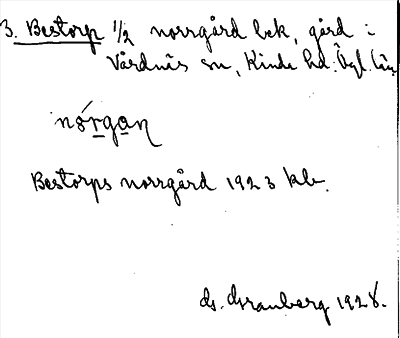 3. Bestorp 1/2 norrgård bek, gård i
Vårdnäs sn, Kinda hd. Ögl. län
nórgan
Bestorps norrgård 1923 kb.
G. Granberg 1928.